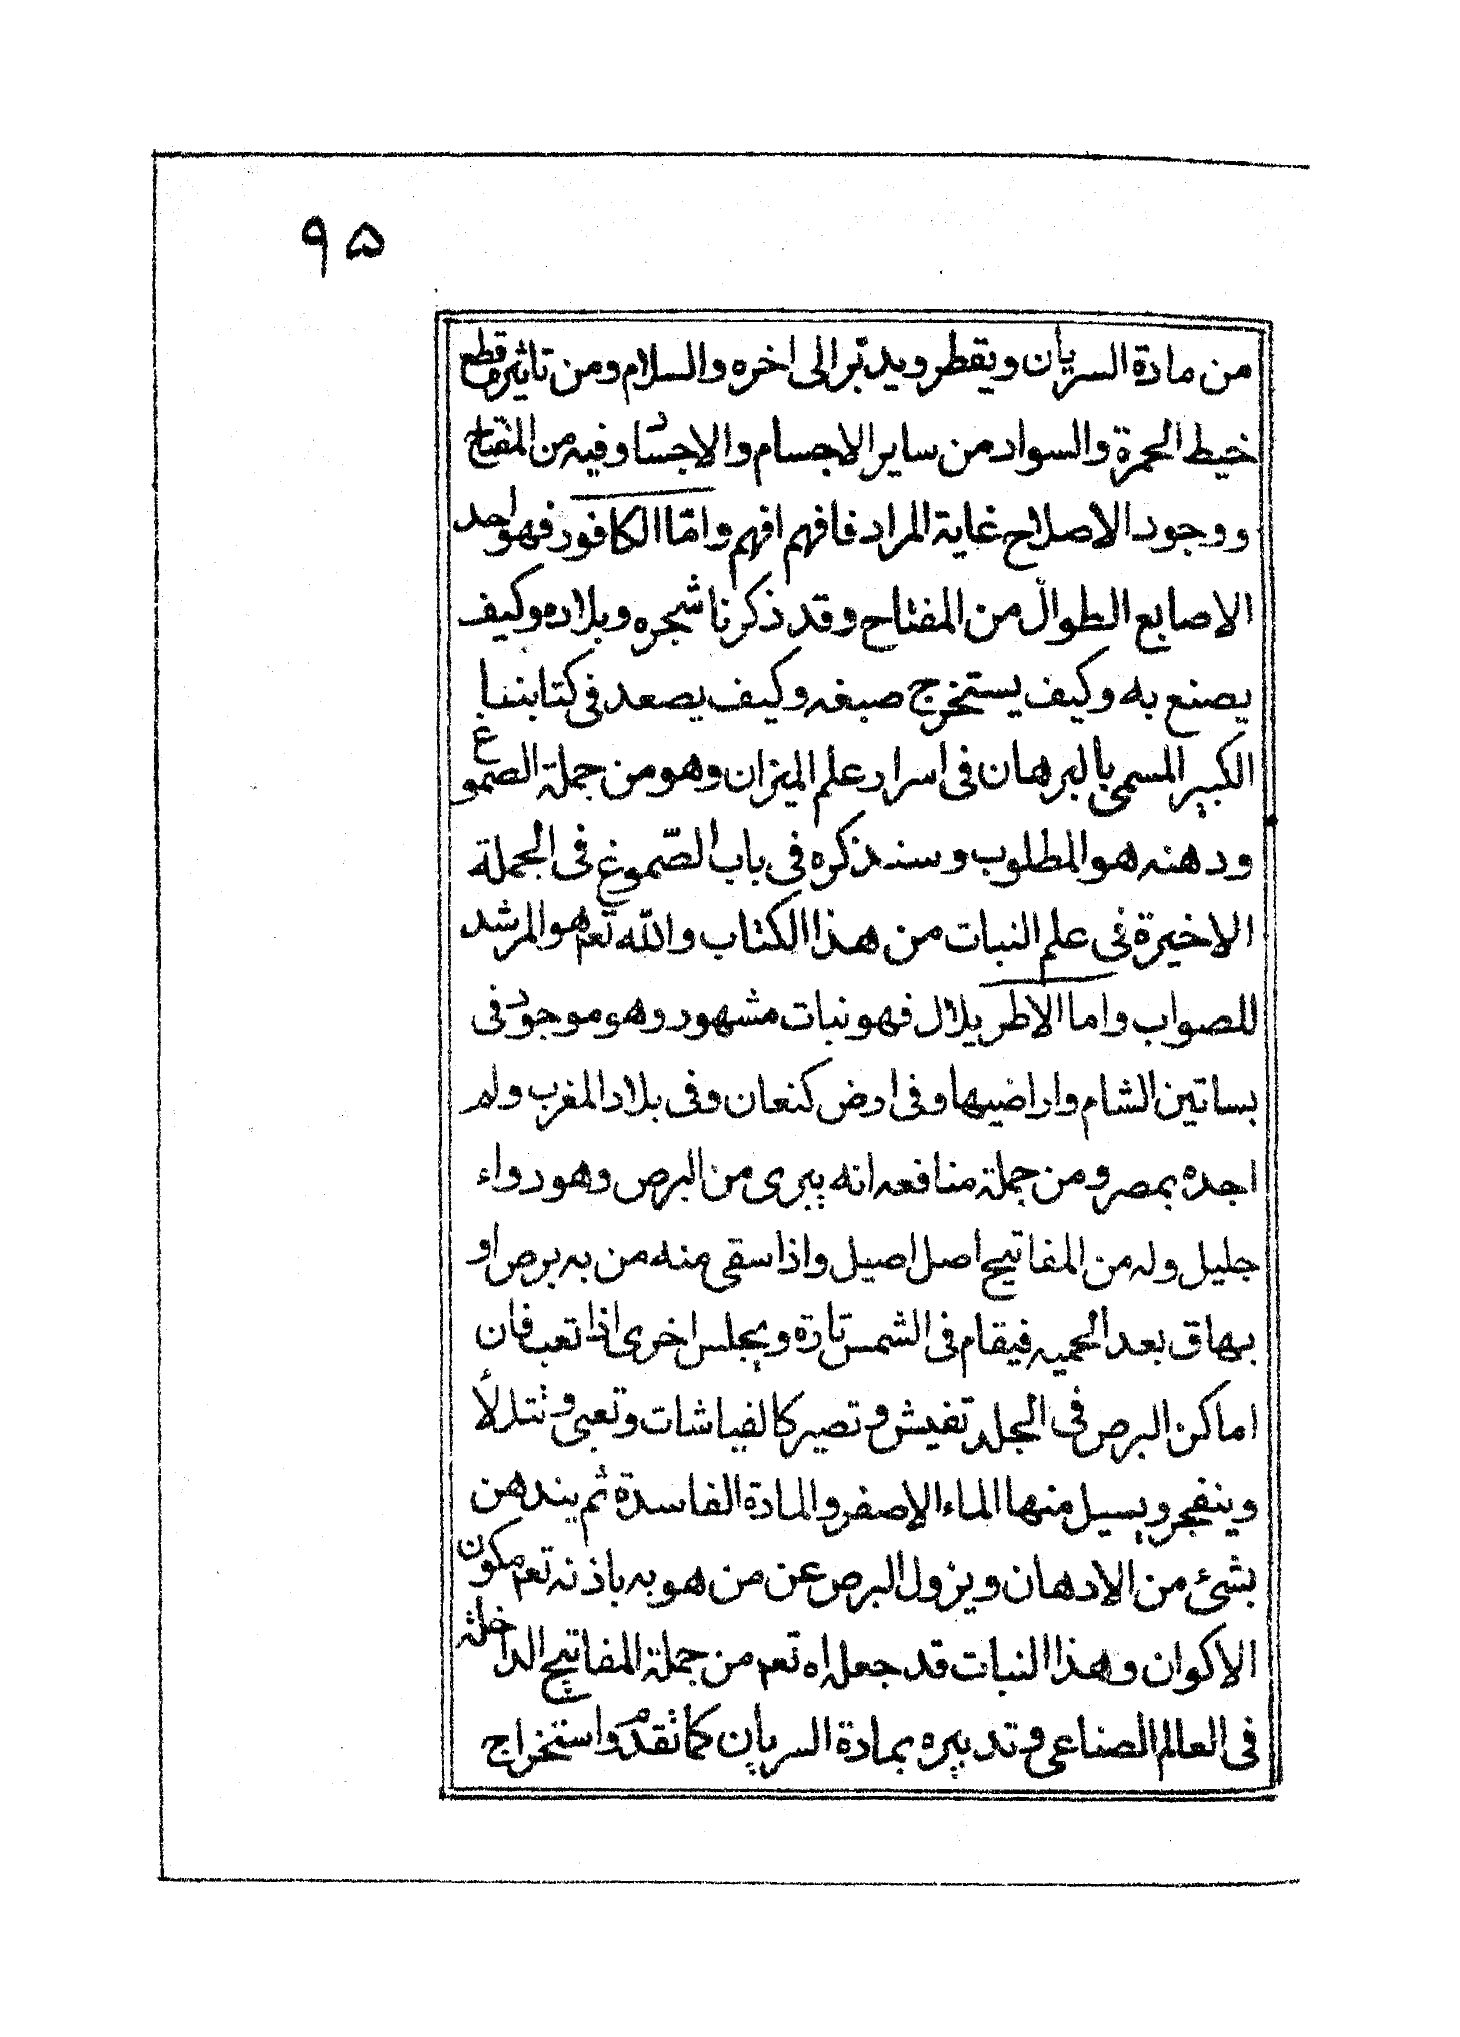 ٩٥
من مادة السريان ويقطر ويدبّر الى اخره والسلام ومن تاثيره قطع
خيط الحمرة والسواد من ساير الاجسام والاجساد وفيه من المفتاح
ووجود الاصلاح غاية المراد فافهم افهم وامّا الكافور فهو احد
الاصابع الطوال من المفتاح وقد ذكرنا شجره وبلاده وكيف
يصنع به وكيف يستخرج صبغه وكيف يصعد فى كتابنا
الكبير المسمى بالبرهان فى اسرار علم الميزان وهو من جملة الصموغ
ودهنه هو المطلوب وسنذكره فى باب الصّموغ فى الجملة
الاخيرة فى علم النبات من هذا الكتاب والله تعم هو المرشد
للصواب واما الاطريلال فهو نبات مشهور وهو موجود فى
بساتين الشام واراضيها وفى ارض كنعان وفى بلاد المغرب ولم
اجده بمصر ومن جملة منافعه انه يبرى من البرص وهو دواء
جليل وله من المفاتيح اصل اصيل واذا سقى منه من به برص او
بهاق بعد الحميه فيقام فى الشمس تارة ويجلس اخرى اذا تعب فان
اماكن البرص فى الجلد تفيش وتصير كالفياشات وتعبى وتتدلأ
وينفجر ويسيل منها الماء الاصفر والمادة الفاسدة ثم يندهن
بشئ من الادهان ويزول البرص عن من هو به باذنه تعم مكون
الاكوان وهذا النبات قد جعله اه تعم من جملة المفاتيح الداخلة
فى العالم الصناعى وتدبيره بمادة السريان كما تقدم واستخراج